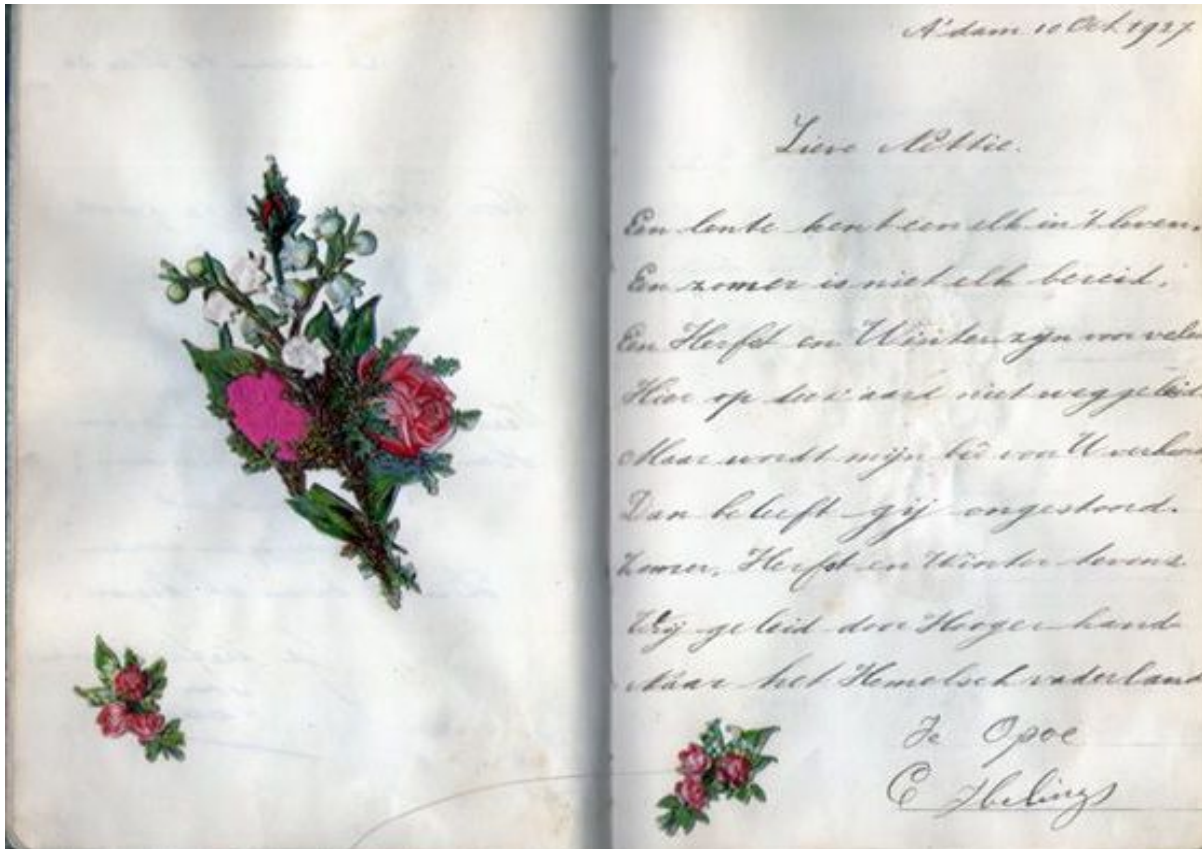 A'dam 10 Oct 1927
Lieve Nettie.
Een lente kent een elk in 't leven,
Een zomer is niet elk bereid,
Een Herfst en Winter zijn voor velen
Hier op deez' aard niet weggeleid
Maar wordt mijn beê voor U verhoord
Dan beleeft gij ongestoord.
Zomer, Herfst en Winter tevens
geleid door Hooger hand
Naar het Hemelsch vaderland
Je Opoe
C Ibelings